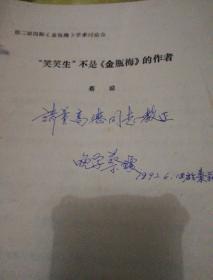 第二届国际《金瓶梅》学术讨论会
“笑笑生”不是《金瓶梅》的作者
蔡
请董高德同志教正
晚学蔡
1992.6.